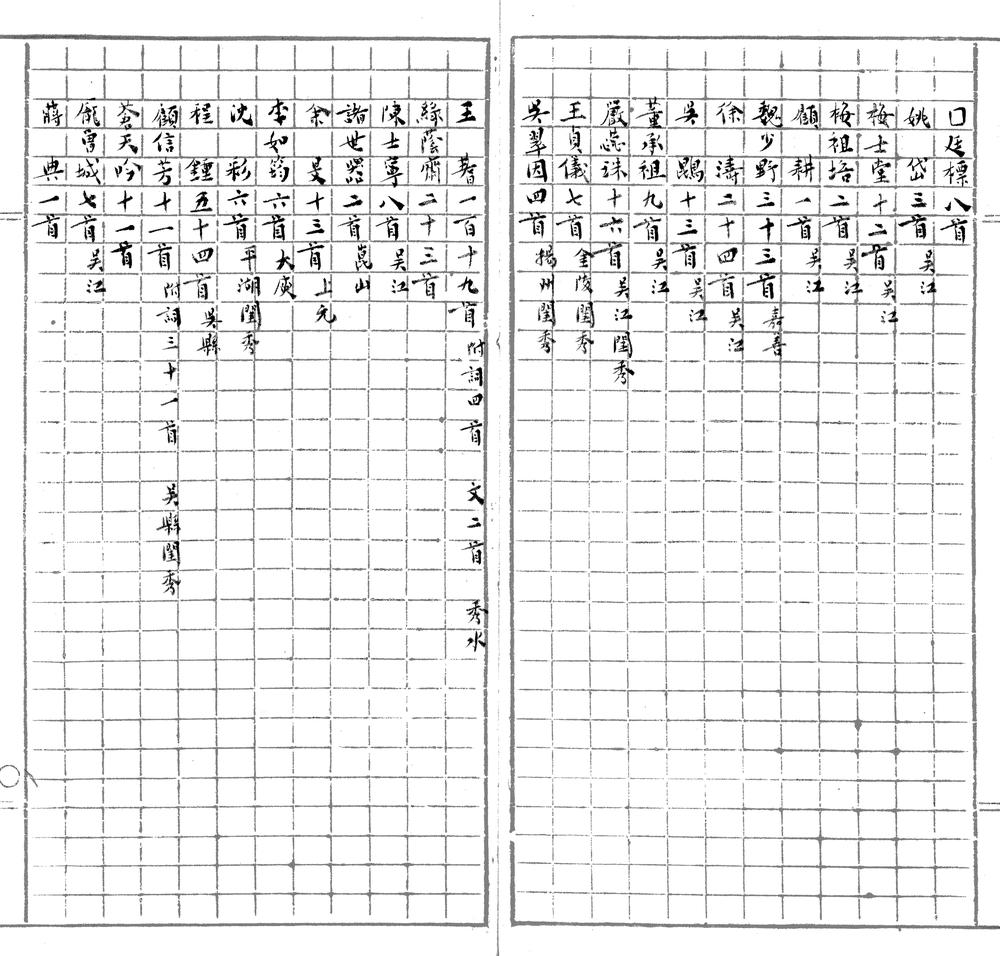 口廷標八首
姚　岱三首　吳江
梅士堂十二首　吳江
梅祖培二首　吳江
顧　耕一首　吳江
魏少野三十三首　嘉善
徐　濤二十四首　吳江
吳　鵾十三首　吳江
董承祖九首　吳江
嚴蕊珠十六首　吳江閨秀
王貞儀七首　金陵閨秀
吳翠因四首　揚州閨秀
王　一百十九首　附詞四首　文二首　秀水
綠蔭齋二十三首
陳士寧八首　吳江
諸世器二首　崑山
余　旻十三首　上元
李如筠六首　大庾
沈　彩六首　平湖閨秀
程　鍾五十四首　吳縣
顧信芳十一首　附詞三十一首　吳縣閨秀
蒼天吟十一首
龐曾城七首　吳江
蔣　典一首